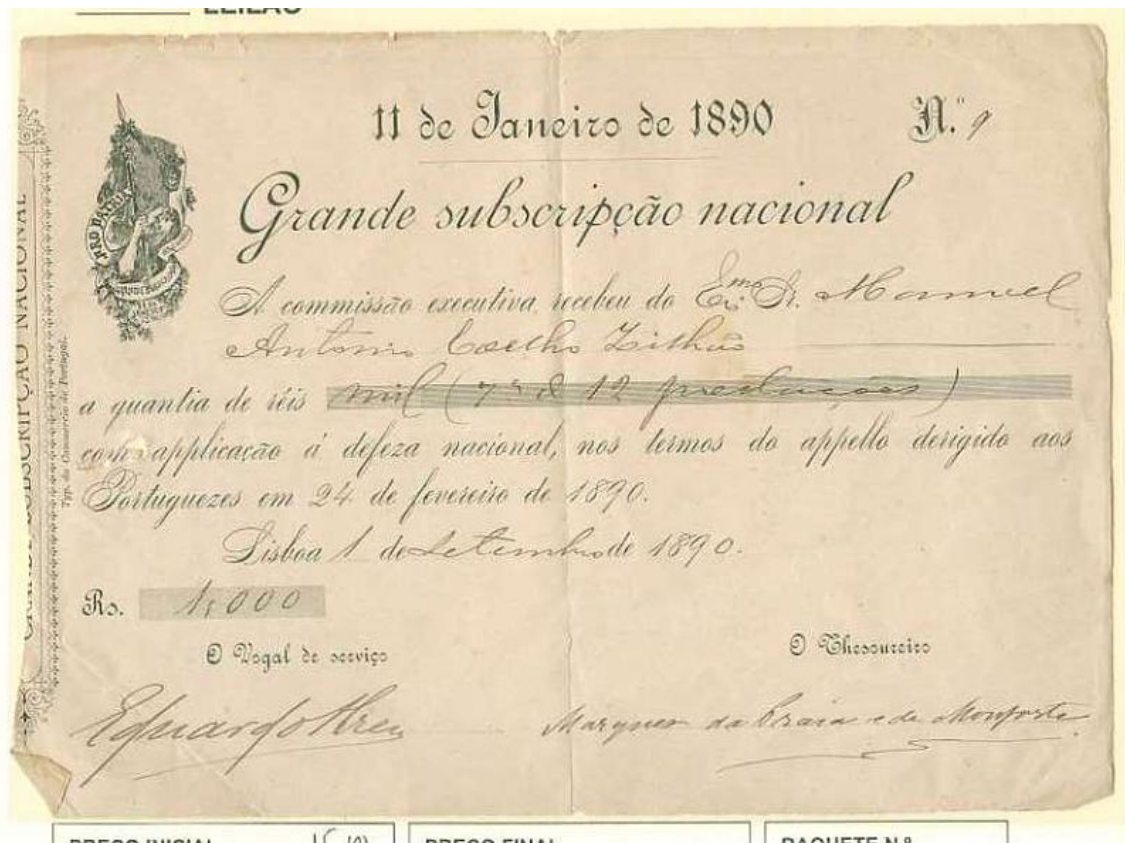 LEILÃO
11 de Janeiro de 1890
N.º 9
Grande subscripção nacional
A commissão executiva recebeu do Exmo Sr. Manuel
Antonio Coelho
a quantia de réis mil (7ª de 12 prestações)
com applicação á defeza nacional, nos termos do appello derigido aos
Portuguezes em 24 de fevereiro de 1890.
Lisboa 1 de Setembro de 1890.
Rs. 1,000
O Vogal de serviço
O Thesoureiro
Eduardo Abreu
Marquez da Praia e de Monforte
PRO PATRIA
GRANDE SUBSCRIPÇÃO NACIONAL
Typ. do Commercio de Portugal.
PREÇO INICIAL
PREÇO FINAL
PAQUETE N.º